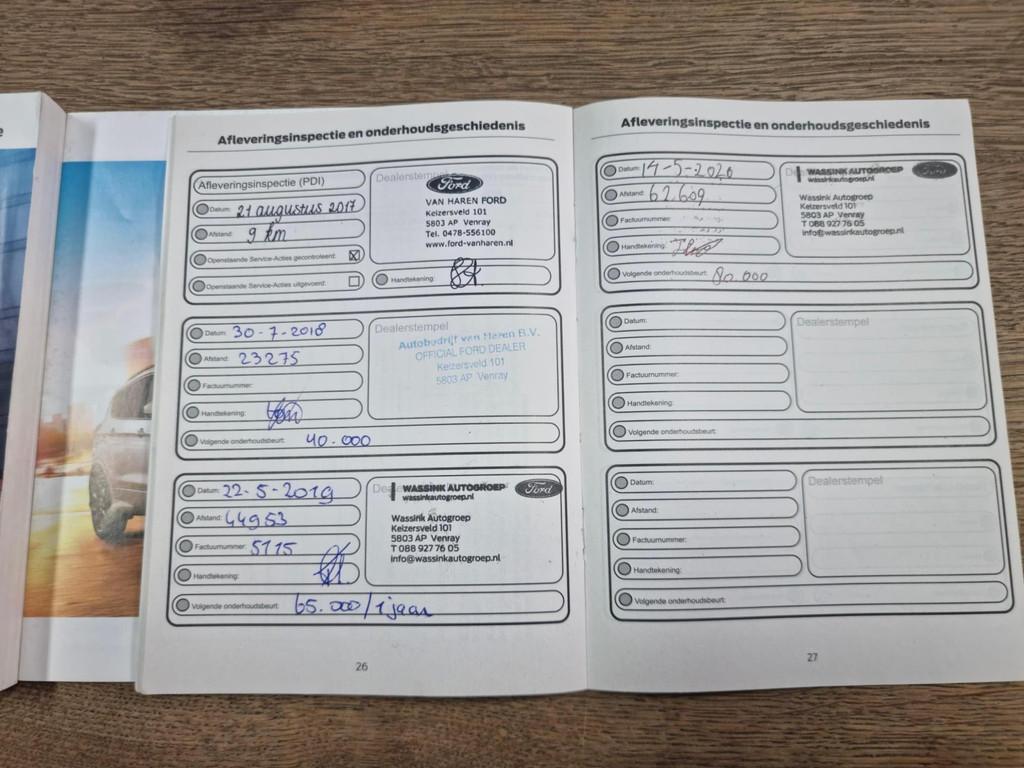 e
Afleveringsinspectie en onderhoudsgeschiedenis
Afleveringsinspectie (PDI)
Datum: 21 augustus 2017
Afstand: 9 km
Openstaande Service-Acties gecontroleerd:
Openstaande Service-Acties uitgevoerd:
Dealerstempel
Ford
VAN HAREN FORD
Keizersveld 101
5803 AP Venray
Tel. 0478-556100
www.ford-vanharen.nl
Handtekening:
Datum: 30-7-2018
Afstand: 23275
Factuurnummer:
Handtekening:
Volgende onderhoudsbeurt: 40.000
Dealerstempel
Autobedrijf van Haren B.V.
OFFICIAL FORD DEALER
Keizersveld 101
5803 AP Venray
Datum: 22-5-2019
Afstand: 44953
Factuurnummer: 5115
Handtekening:
Volgende onderhoudsbeurt: 65.000/1 jaar
WASSINK AUTOGROEP
wassinkautogroep.nl
Ford
Wassink Autogroep
Keizersveld 101
5803 AP Venray
T 088 927 76 05
info@wassinkautogroep.nl
26
Afleveringsinspectie en onderhoudsgeschiedenis
Datum: 14-5-2020
Afstand: 62.609
Factuurnummer:
Handtekening:
Volgende onderhoudsbeurt: 80.000
WASSINK AUTOGROEP
wassinkautogroep.nl
Ford
Wassink Autogroep
Keizersveld 101
5803 AP Venray
T 088 927 76 05
info@wassinkautogroep.nl
Datum:
Afstand:
Factuurnummer:
Handtekening:
Volgende onderhoudsbeurt:
Dealerstempel
Datum:
Afstand:
Factuurnummer:
Handtekening:
Volgende onderhoudsbeurt:
Dealerstempel
27